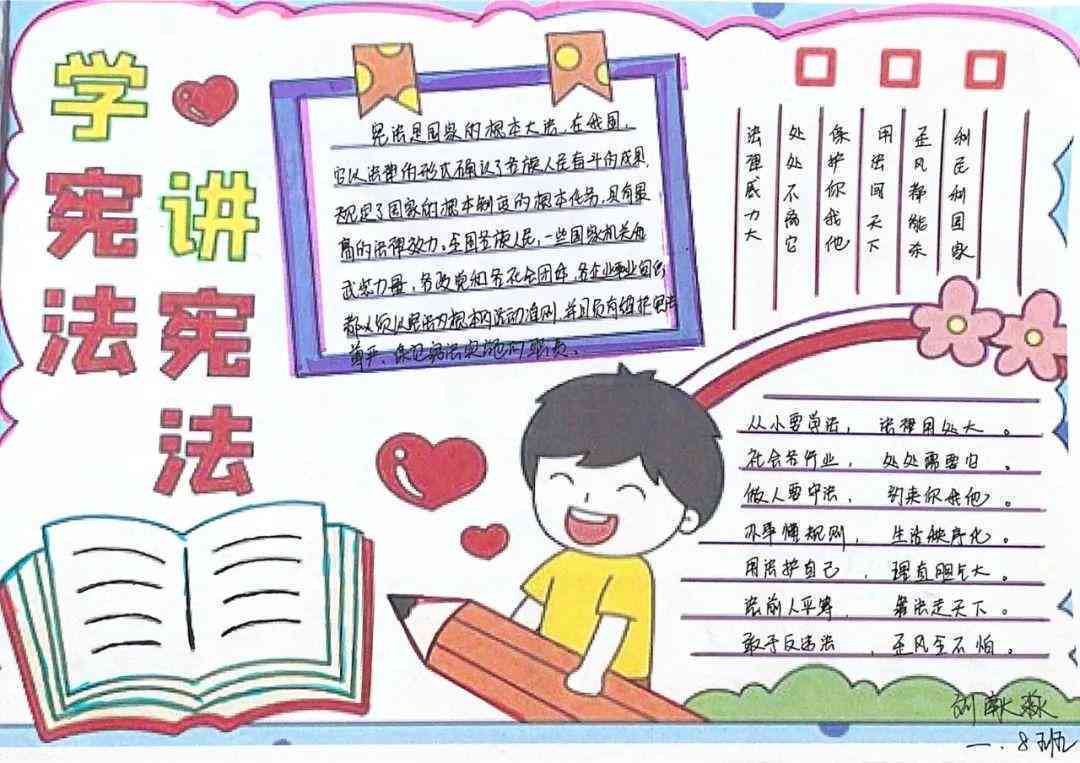 学宪法
讲宪法
宪法是国家的根本大法,在我国,
它以法律的形式确认了各族人民奋斗的成果,
规定了国家的根本制度的根本任务,具有最
高的法律效力。全国各族人民,一些国家机关和
武装力量、各政党和各社会团体、各企业事业
都必须以宪法为根本的活动准则,并且负有维护宪法
尊严、保证宪法实施的职责。
法理威力大
处处不离它
保护你我他
用法间天下
歪风都能杀
利民利国家
从小要学法, 法理用处大。
社会各行业, 处处需要它。
做人要守法, 约束你我他。
办事懂规则, 生活秩序化。
用法护自己, 理直胆气大。
法前人平等, 法走天下。
敢于反违法, 歪风全不怕。
刘淼
一.8班